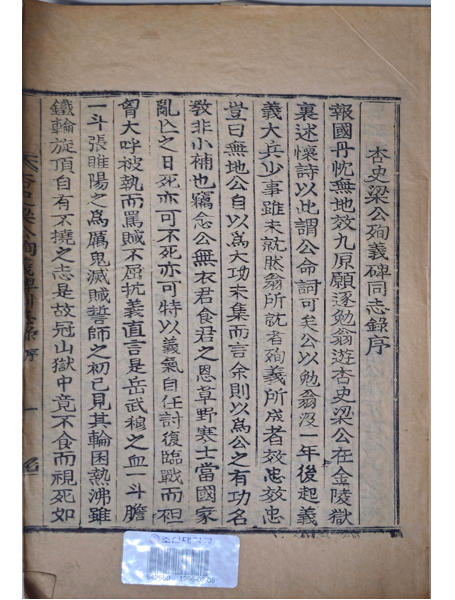 杏史梁公殉義碑同志錄序
報國丹忱無地效九原願逐勉翁遊杏史梁公在金陵獄
裏述懷詩以此謂公命詞可矣公以勉翁沒一年後起義
義大兵少事雖未就然翁所就者殉義所成者效忠效忠
豈曰無地公自以爲大功未集而言余則以爲公之有功名
敎非小補也竊念公無衣君食君之恩草野寒士當國家
亂亡之日死亦可不死亦可特以義氣自任討復臨戰而袒
胷大呼被執而罵賊不屈抗義直言是岳武穆之血一斗膽
一斗張睢陽之爲厲鬼滅賊誓師之初已見其輪囷熱沸雖
鐵輪旋頂自有不撓之志是故冠山獄中竟不食而視死如
杏史梁公殉義碑同志錄序
一
조선대학교